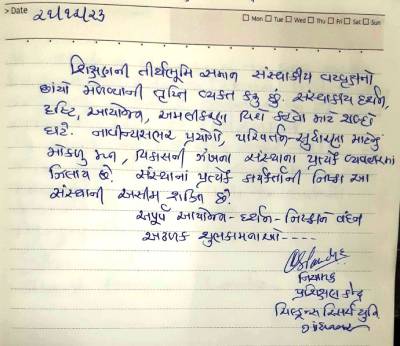 > Date ૨૧/૧૨/૨૩ Mon Tue Wed Thu Fri Sat Sun
શિક્ષણની તીર્થભૂમિ સમાન સંસ્થાકીય વટવૃક્ષનો
છાંયો મેળવ્યાની તૃપ્તિ વ્યક્ત કરું છું. સંસ્થાકીય દર્શન,
દૃષ્ટિ, આયોજન, અમલીકરણ વિશે કહેવા માટે શબ્દો
ઘટે. નાવીન્યસભર પ્રયોગો, પરિવર્તન-સુધારણા માટેનું
મોકળું મન, વિકાસની ઝંખના સંસ્થાના પ્રત્યેક વ્યવહારમાં
નિહાળાય છે. સંસ્થાનાં પ્રત્યેક કાર્યકર્તાની નિષ્ઠા આ
સંસ્થાની અસીમ શક્તિ છે.
અપૂર્વ આયોજન - દર્શન - નિષ્ઠાને વંદન
અઢળક શુભકામનાઓ ----
નિયામક
પ્રશિક્ષણ કેન્દ્ર
ચિલ્ડ્રન્સ રિસર્ચ યુનિ
ગાંધીનગર